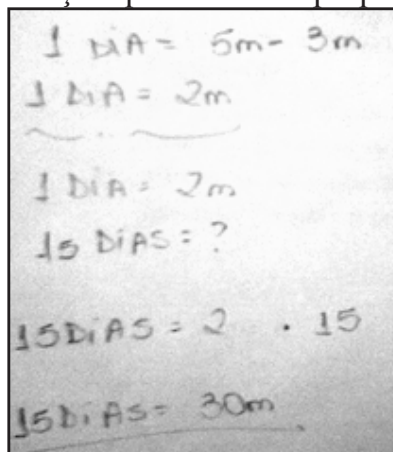 1 DIA = 5m - 3m
1 DIA = 2m
1 DIA = 2m
15 DIAS = ?
15 DIAS = 2 . 15
15 DIAS = 30m